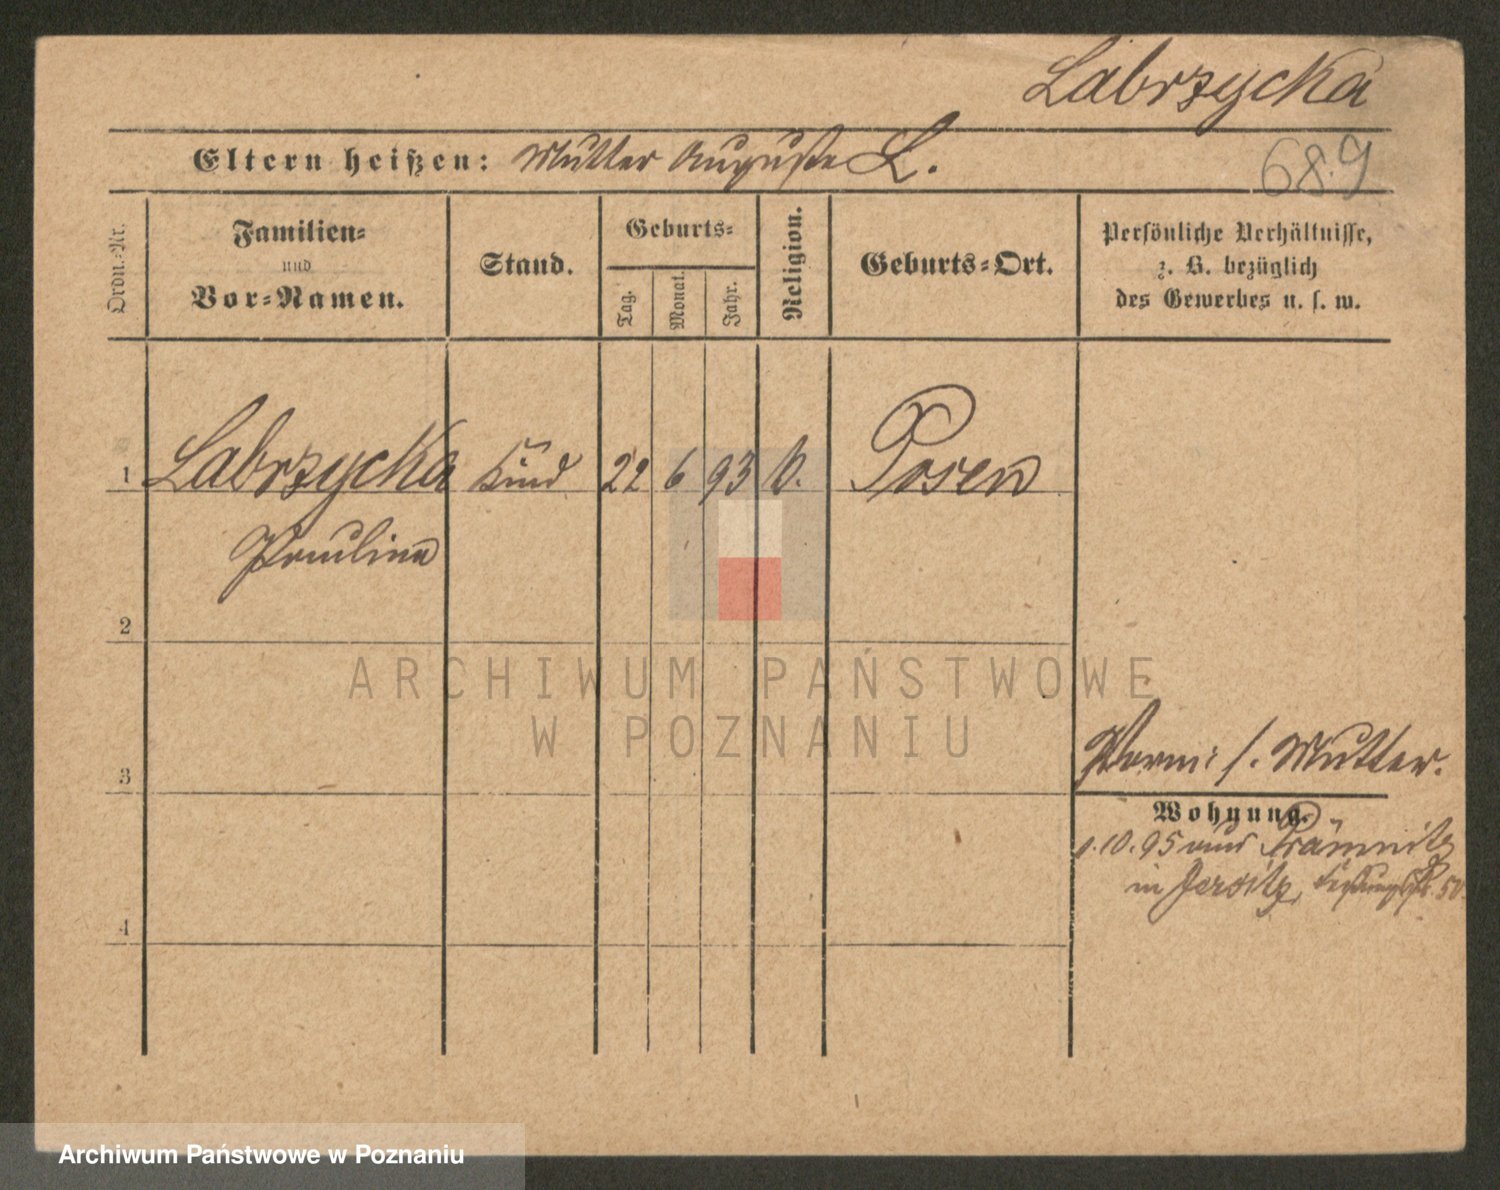 Labrzycka
Eltern heißen: Mutter Auguste L.
689
Ordn.-Nr.
Familien-
und
Vor-Namen.
Stand.
Geburts-
Tag.
Monat.
Jahr.
Religion.
Geburts-Ort.
Persönliche Verhältnisse,
z. B. bezüglich
des Gewerbes u. s. w.
1 Labrzycka Kind 22 6 93 k. Posen
Pauline
2
3
4
Vorm: s. Mutter.
Wohnung.
1.10.95 nach
in Jersitz, 50
ARCHIWUM PAŃSTWOWE
W POZNANIU
Archiwum Państwowe w Poznaniu